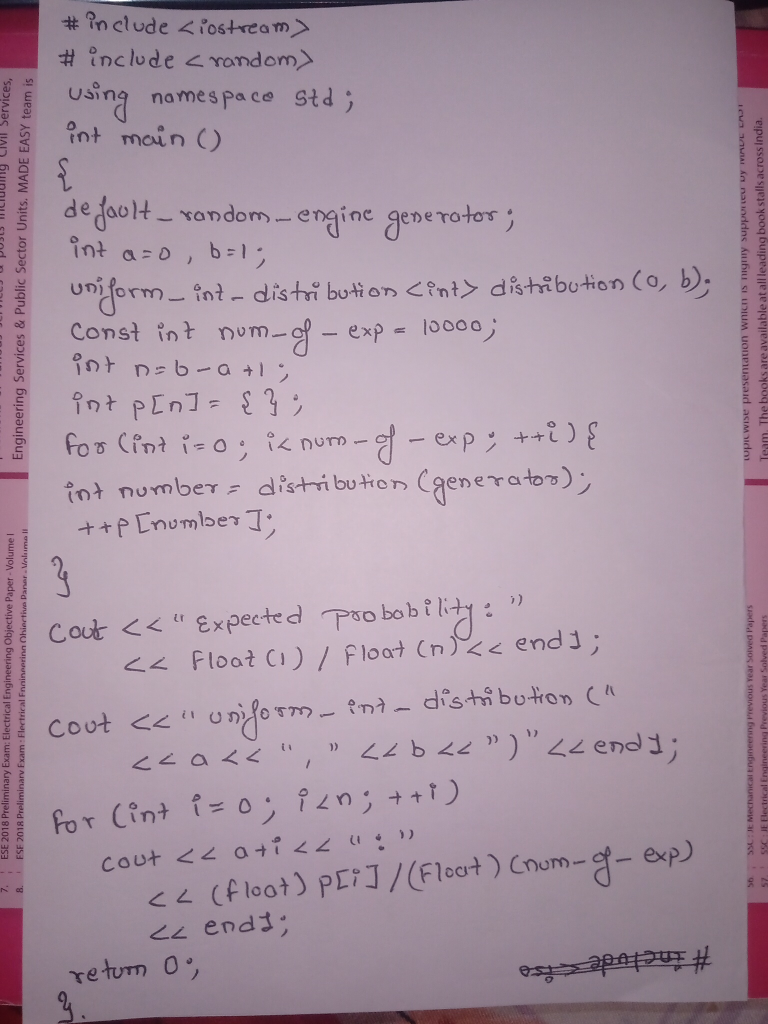 # include <iostream>
# include <random>
using namespace std;
int main ()
{
default_random_engine generator;
int a=0, b=1;
uniform_int_distribution <int> distribution (a, b);
const int num_of_exp = 10000;
int n=b-a+1;
int p[n] = { };
for (int i=0; i<num_of_exp; ++i) {
int number = distribution (generator);
++p[number];
}
cout << "Expected probability: "
<< float(1) / float(n) << endl;
cout << "uniform_int_distribution ("
<< a << "," << b << ")" << endl;
for (int i=0; i<n; ++i)
cout << a+i << ": "
<< (float) p[i] / (float) (num_of_exp)
<< endl;
return 0;
}.
# include <iso
Engineering Services & Public Sector Units. MADE EASY team is
7. ESE 2018 Preliminary Exam: Electrical Engineering Objective Paper - Volume I
8. ESE 2018 Preliminary Exam: Electrical Engineering Objective Paper - Volume II
topicwise presentation which is highly supported by MADE EASY
Team. The books are available at all leading book stalls across India.
56. SSC: JE Mechanical Engineering Previous Year Solved Papers
57. SSC: JE Electrical Engineering Previous Year Solved Papers